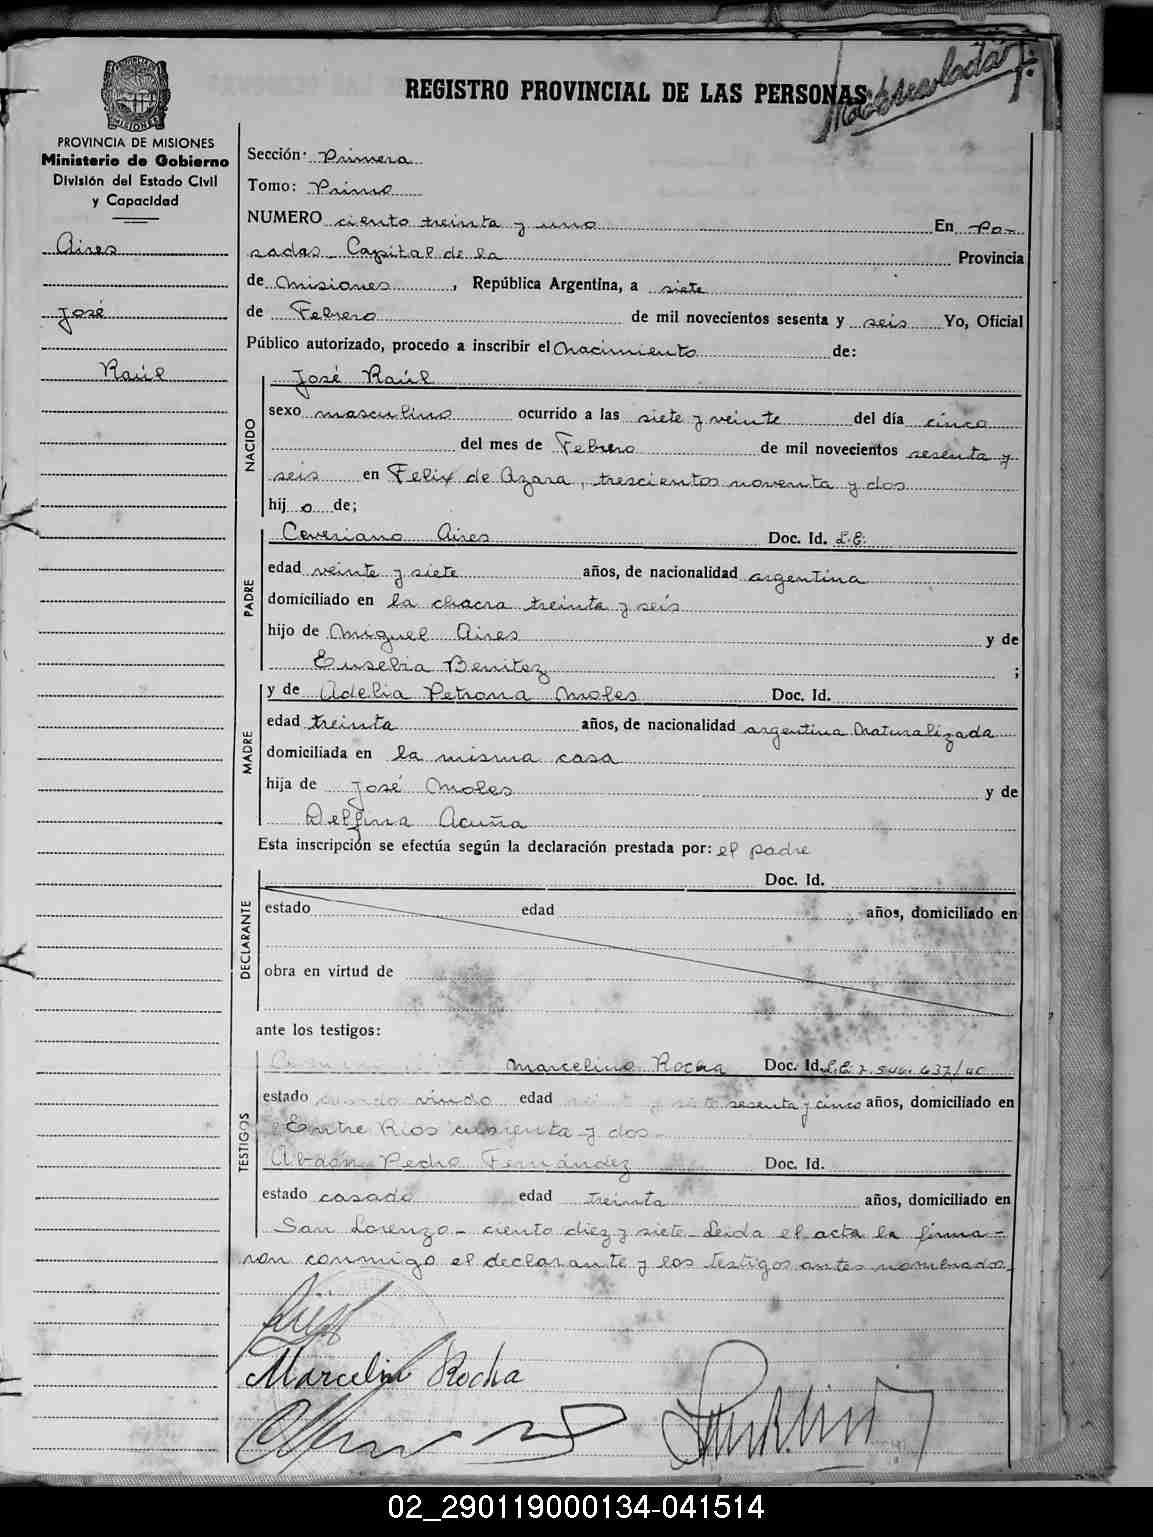 REGISTRO PROVINCIAL DE LAS PERSONAS
PROVINCIA DE MISIONES
Ministerio de Gobierno
División del Estado Civil
y Capacidad
Aires
José
Raúl
Sección: Primera
Tomo: Primo
NUMERO ciento treinta y uno En Po-
sadas Capital de la Provincia
de Misiones, República Argentina, a siete
de Febrero de mil novecientos sesenta y seis Yo, Oficial
Público autorizado, procedo a inscribir el nacimiento de:
NACIDO
José Raúl
sexo masculino ocurrido a las siete y veinte del día cinco
del mes de Febrero de mil novecientos sesenta y
seis en Felix de Azara, trescientos noventa y dos
hij o de;
PADRE
Ceveriano Aires Doc. Id. L.E.
edad veinte y siete años, de nacionalidad argentina
domiciliado en la chacra treinta y seis
hijo de Miguel Aires y de
Eusebia Benitez ;
MADRE
y de Adelia Petrona Moles Doc. Id.
edad treinta años, de nacionalidad argentina naturalizada
domiciliada en la misma casa
hija de José Moles y de
Delfina Acuña
Esta inscripción se efectúa según la declaración prestada por: el padre
DECLARANTE
Doc. Id.
estado edad años, domiciliado en
obra en virtud de
ante los testigos:
TESTIGOS
Marcelino Rocha Doc. Id. L.E. 7.546.637/40
estado viudo edad sesenta y cinco años, domiciliado en
Entre Rios cuarenta y dos
Abdón Pedro Fernández Doc. Id.
estado casado edad treinta años, domiciliado en
San Lorenzo - ciento diez y siete - Leida el acta la firma-
ron conmigo el declarante y los testigos antes nombrados.
Marcelino Rocha
02_290119000134-041514